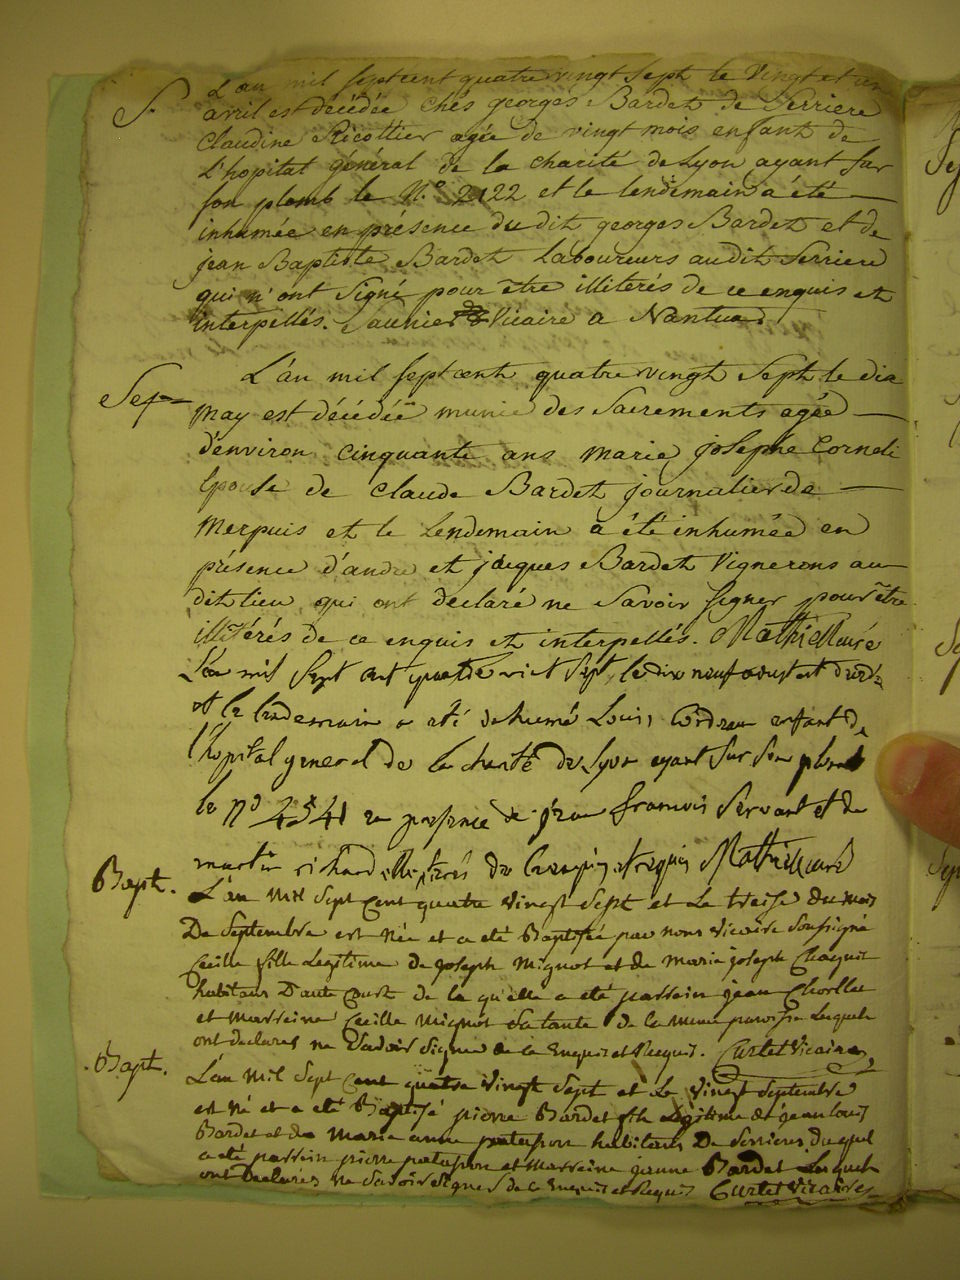 S. L'an mil sept cent quatre vingt Sept le Vingt et un
avril est décédée chés georges Bardet de Serriere
Claudine Ricottier agée de vingt mois enfant de
L'hopital général de la charité de Lyon ayant sur
son plomb le N.° 2122 et le lendemain a été
inhumée en présence du dit georges Bardet et de
jean Baptiste Bardet Laboureurs audit Serriere
qui n'ont Signé pour être illitérés de ce enquis et
interpellés. Saunier Vicaire a Nantua
Sep L'an mil sept cent quatre vingt Sept le dix
may est décédée munie des Sacrements agée
d'environ cinquante ans marie josephe Corneli
Epouse de Claude Bardet journalier de
Merpuis et le Lendemain a été inhumée en
présence d'andré et jacques Bardet Vignerons au
dit lieu qui ont declaré ne Savoir signer pour être
illitérés de ce enquis et interpellés. Mathieu curé
L'an mil Sept cent quatre vint Sept, le dix neuf aoust est
et le lendemain a eté inhumé Louis enfant de
l'hopital general de la charité de Lyon ayant sur son plomb
le n° 4541 en presence de jean francois Servant et de
martin richard illitérés de enquis Mathieu curé
Bapt. L'an Mil Sept Cent quatre Vingt Sept et Le treise du mois
De Septembre est Née et a eté Baptisée par nous Vicaire Soussigné
Cecille fille Legitime de joseph Mignot et de marie joseph
habitans D'aute Court de la qu'elle a eté parrein jean
et Marreine Cecille Mignot Sa tante de la meme paroisse Lesquels
ont declarés ne Savoir Signer de ce Enquis et Requis. Curtet Vicaire
Bapt. L'an Mil Sept Cent quatre Vingt Sept et Le Vingt Septembre
est Né et a eté Baptisé pierre Bardet fils Legitime de jean louis
Bardet et de Marie anne habitans De Serriere duquel
a eté parrein pierre et Marreine jeanne Bardet Lesquels
ont Declarés Ne Savoir Signer de ce Enquis et Requis Curtet Vicaire